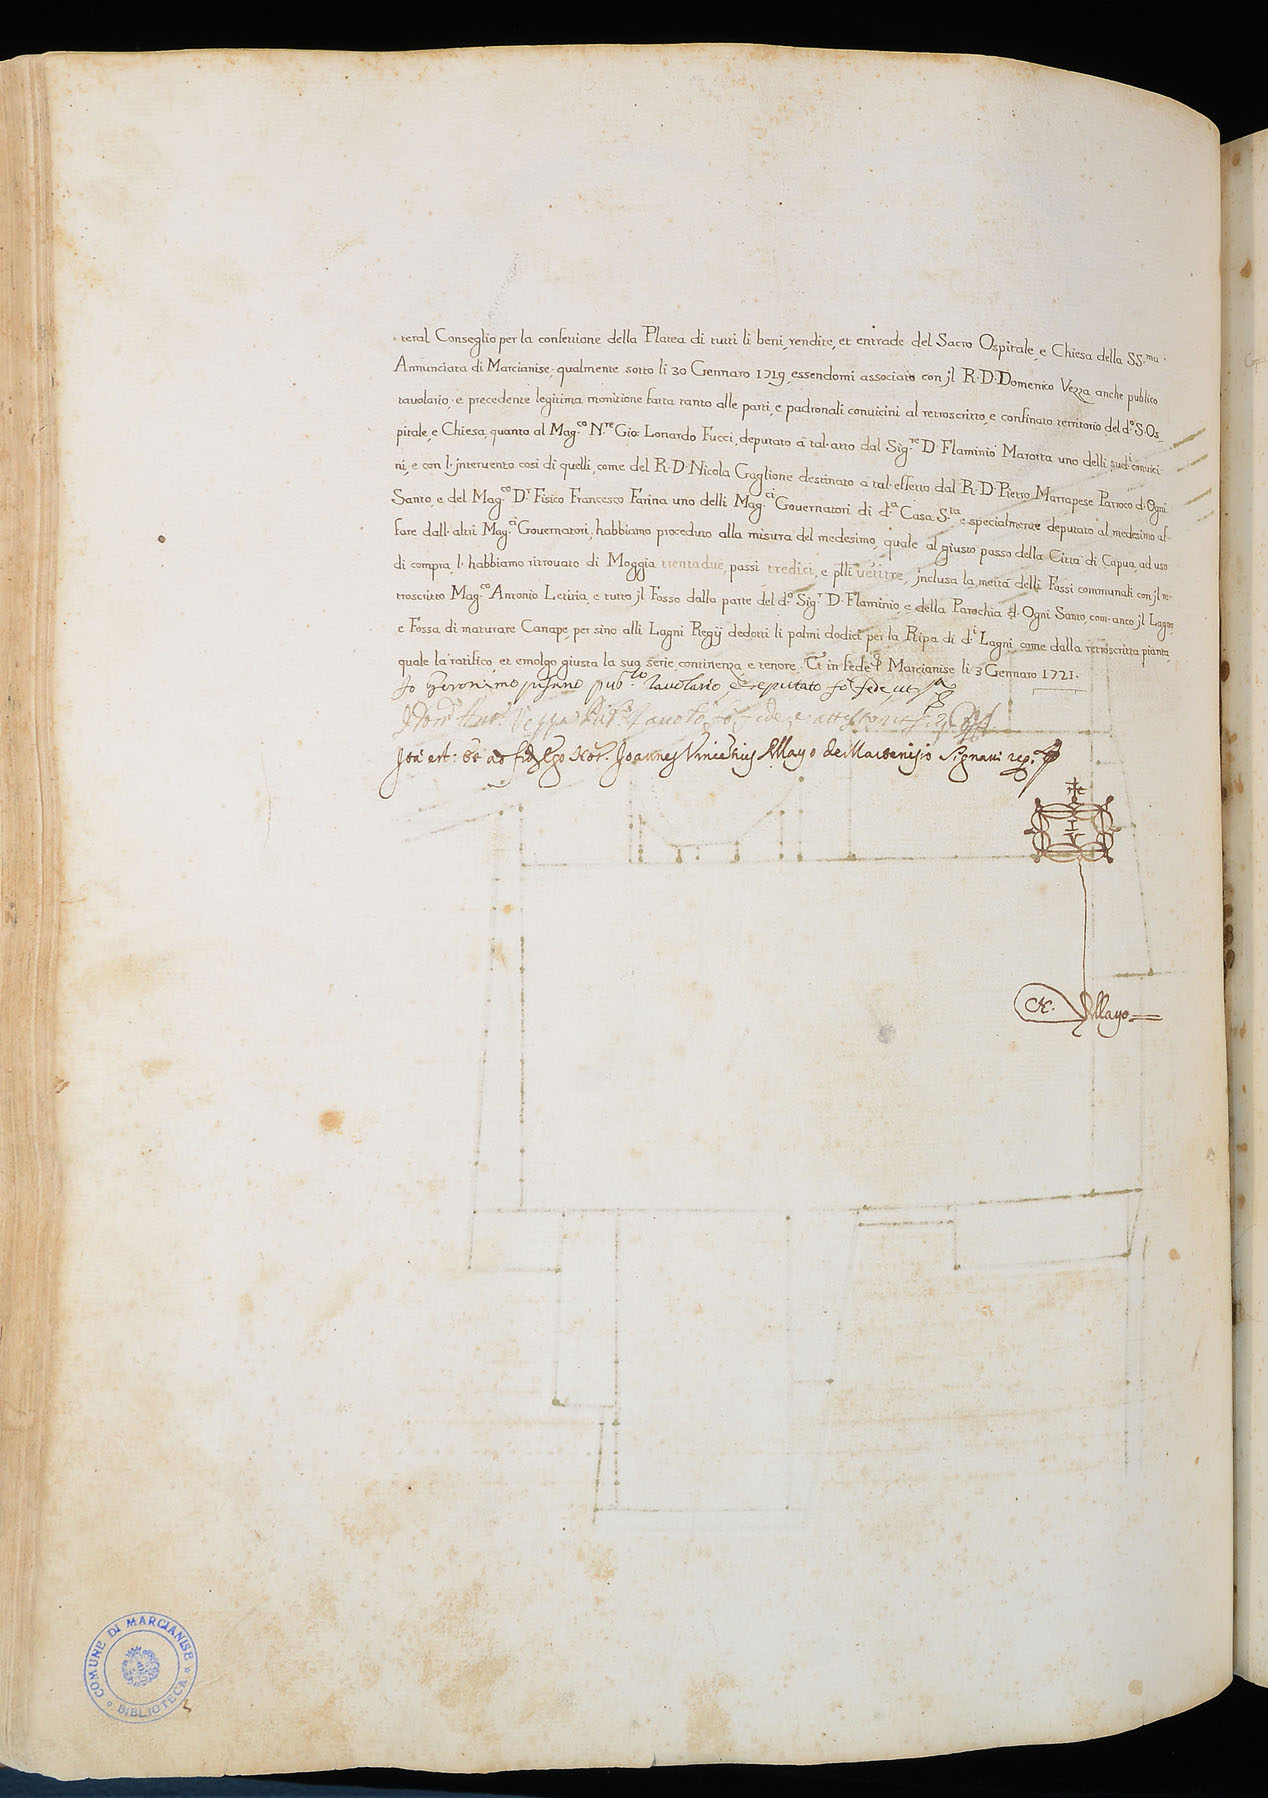 teral Conseglio per la confettione della Platea di tutti li beni, rendite, et entrade del Sacro Ospitale, e Chiesa della SS.ma
Annunciata di Marcianise, qualmente sotto li 30 Gennaro 1719, essendomi associato con jl R. D. Domenico Vezza anche publico
tauolario, e precedente legitima monitione fatta tanto alle parti, e padronali conuicini al retroscritto, e confinato territorio del d.o S. Os-
pitale, e Chiesa, quanto al Mag.co N.re Gio: Lonardo Fucci, deputato a tal atto dal Sig.re D. Flaminio Marotta uno delli sud.i conuici-
ni, e con l'interuento così di quelli, come del R. D. Nicola Gaglione destinato a tal effetto dal R. D. Pietro Marrapese Parroco d'Ogni
Santo, e del Mag.co D.r Fisico Francesco Farina uno delli Mag.ci Gouernatori di d.a Casa S.ta e specialmente deputato al medesimo af-
fare dall'altri Mag.ci Gouernatori, habbiamo proceduto alla misura del medesimo, quale al giusto passo della Città di Capua, ad uso
di compra, l'habbiamo ritrouato di Moggia trentadue, passi tredici, e p.lli ventitre, jnclusa la metà delli Fossi communali con jl re-
troscritto Mag.co Antonio Letitia, e tutto jl Fosso dalla parte del d.o Sig.r D. Flaminio, e della Parochia d'Ogni Santo, com'anco jl Lagno,
e Fossa di maturare Canape, per sino alli Lagni Regij dedotti li palmi dodici per la Ripa di d.i Lagni, come dalla retroscritta pianta,
quale la ratifico, et emolgo giusta la sua serie, continenza, e tenore. Et in fede Marcianise li 3 Gennaro 1721.
Io Geronimo pub.co Tauolario, e deputato fo fede, ut s.a
Vezza Tauol.o fo fede, e attesto ut s.a
Ita est: et ad fidem ego Not. Joannes Vincentius Allayo de Marcenisio Signaui req.
N. Allayo
COMUNE DI MARCIANISE
BIBLIOTECA